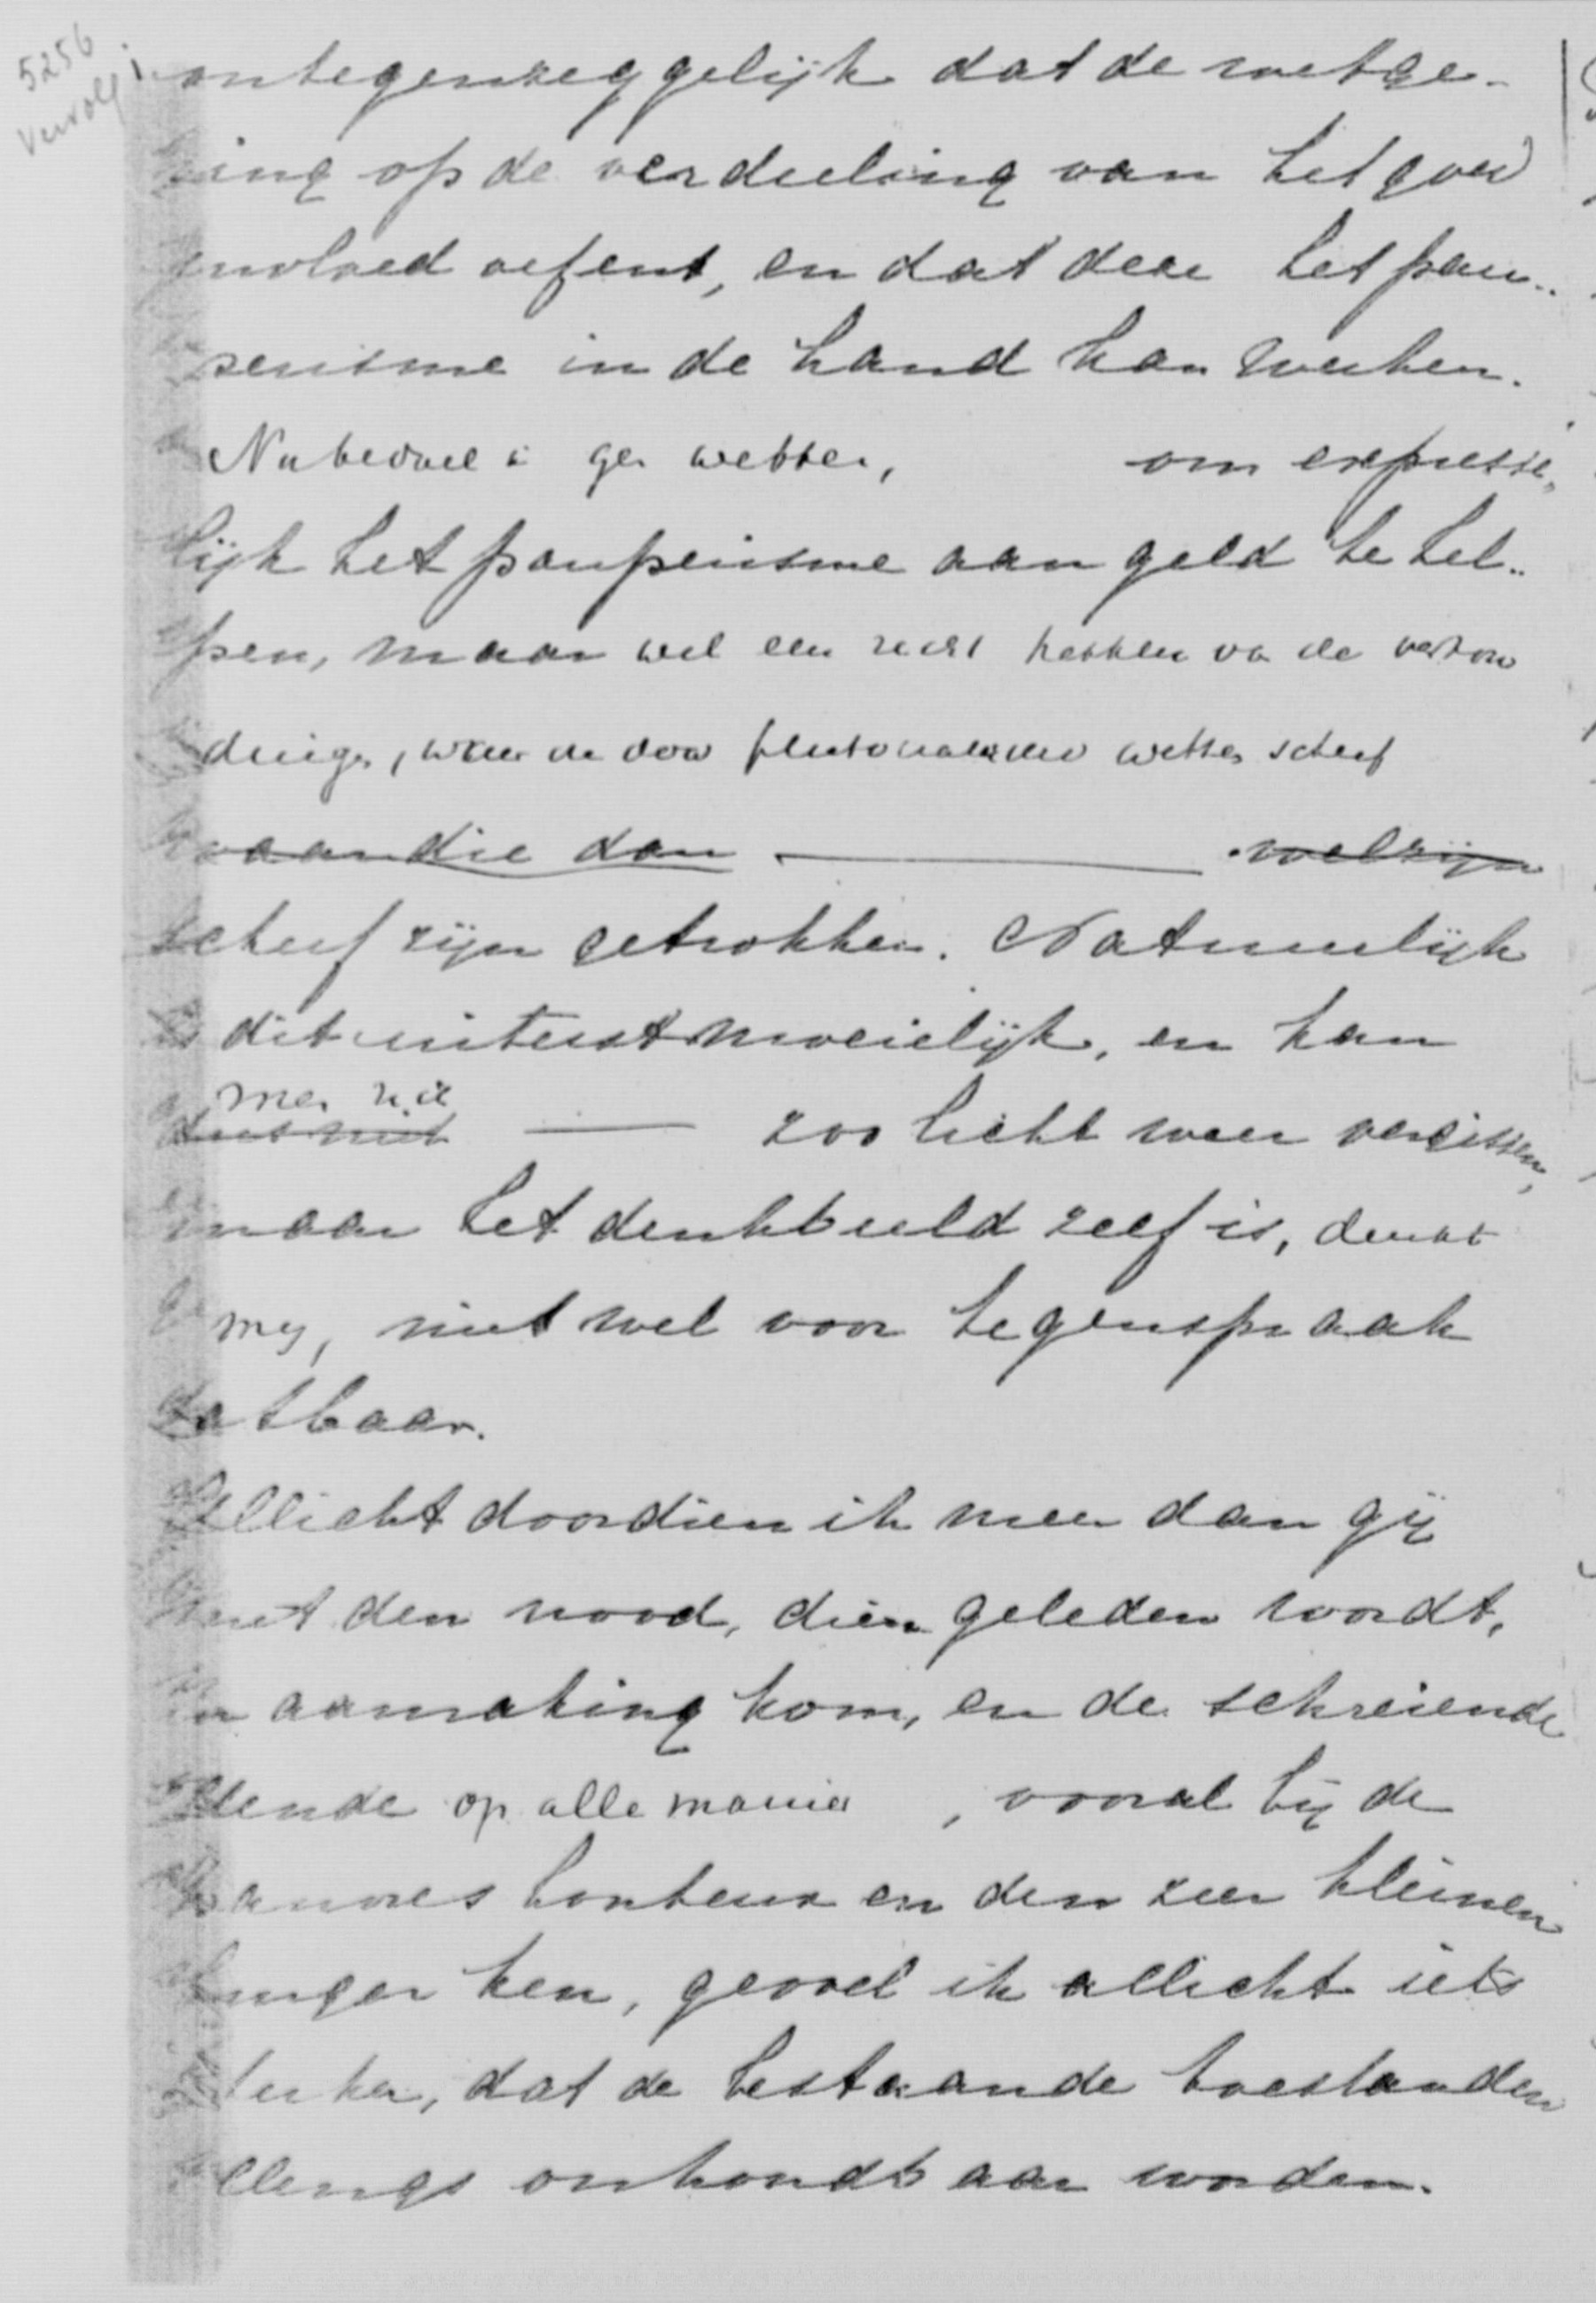 5256
Vervolg
ontegenzeggelijk dat de wetge-
ving op de verdeeling van het goed
invloed oefent, en dat deze het pau-
perisme in de hand kan werken.
Nu bedoel i gen wetten, om expresse-
lijk het pauperisme aan geld te hel-
pen, maar wel een recht trekken va de verhou
dinge, waar de door plutocratische wetten scheef
waar die dan welzijn
scheef zijn getrokken. Natuurlijk
is dit uiterst moeielijk, en kan
men zich
dus niet zoo licht weer vergissen,
maar het denkbeeld zelf is, dunkt
my, niet wel voor tegenspraak
vatbaar.
Allicht doordien ik meer dan gij
met den nood, dien geleden wordt,
in aanraking kom, en de schreiende
ellende op alle manier, vooral bij de
pauvres honteux en den zeer kleinen
burger ken, gevoel ik allicht iets
sterker, dat de bestaande toestanden
allengs onhoudbaar worden.